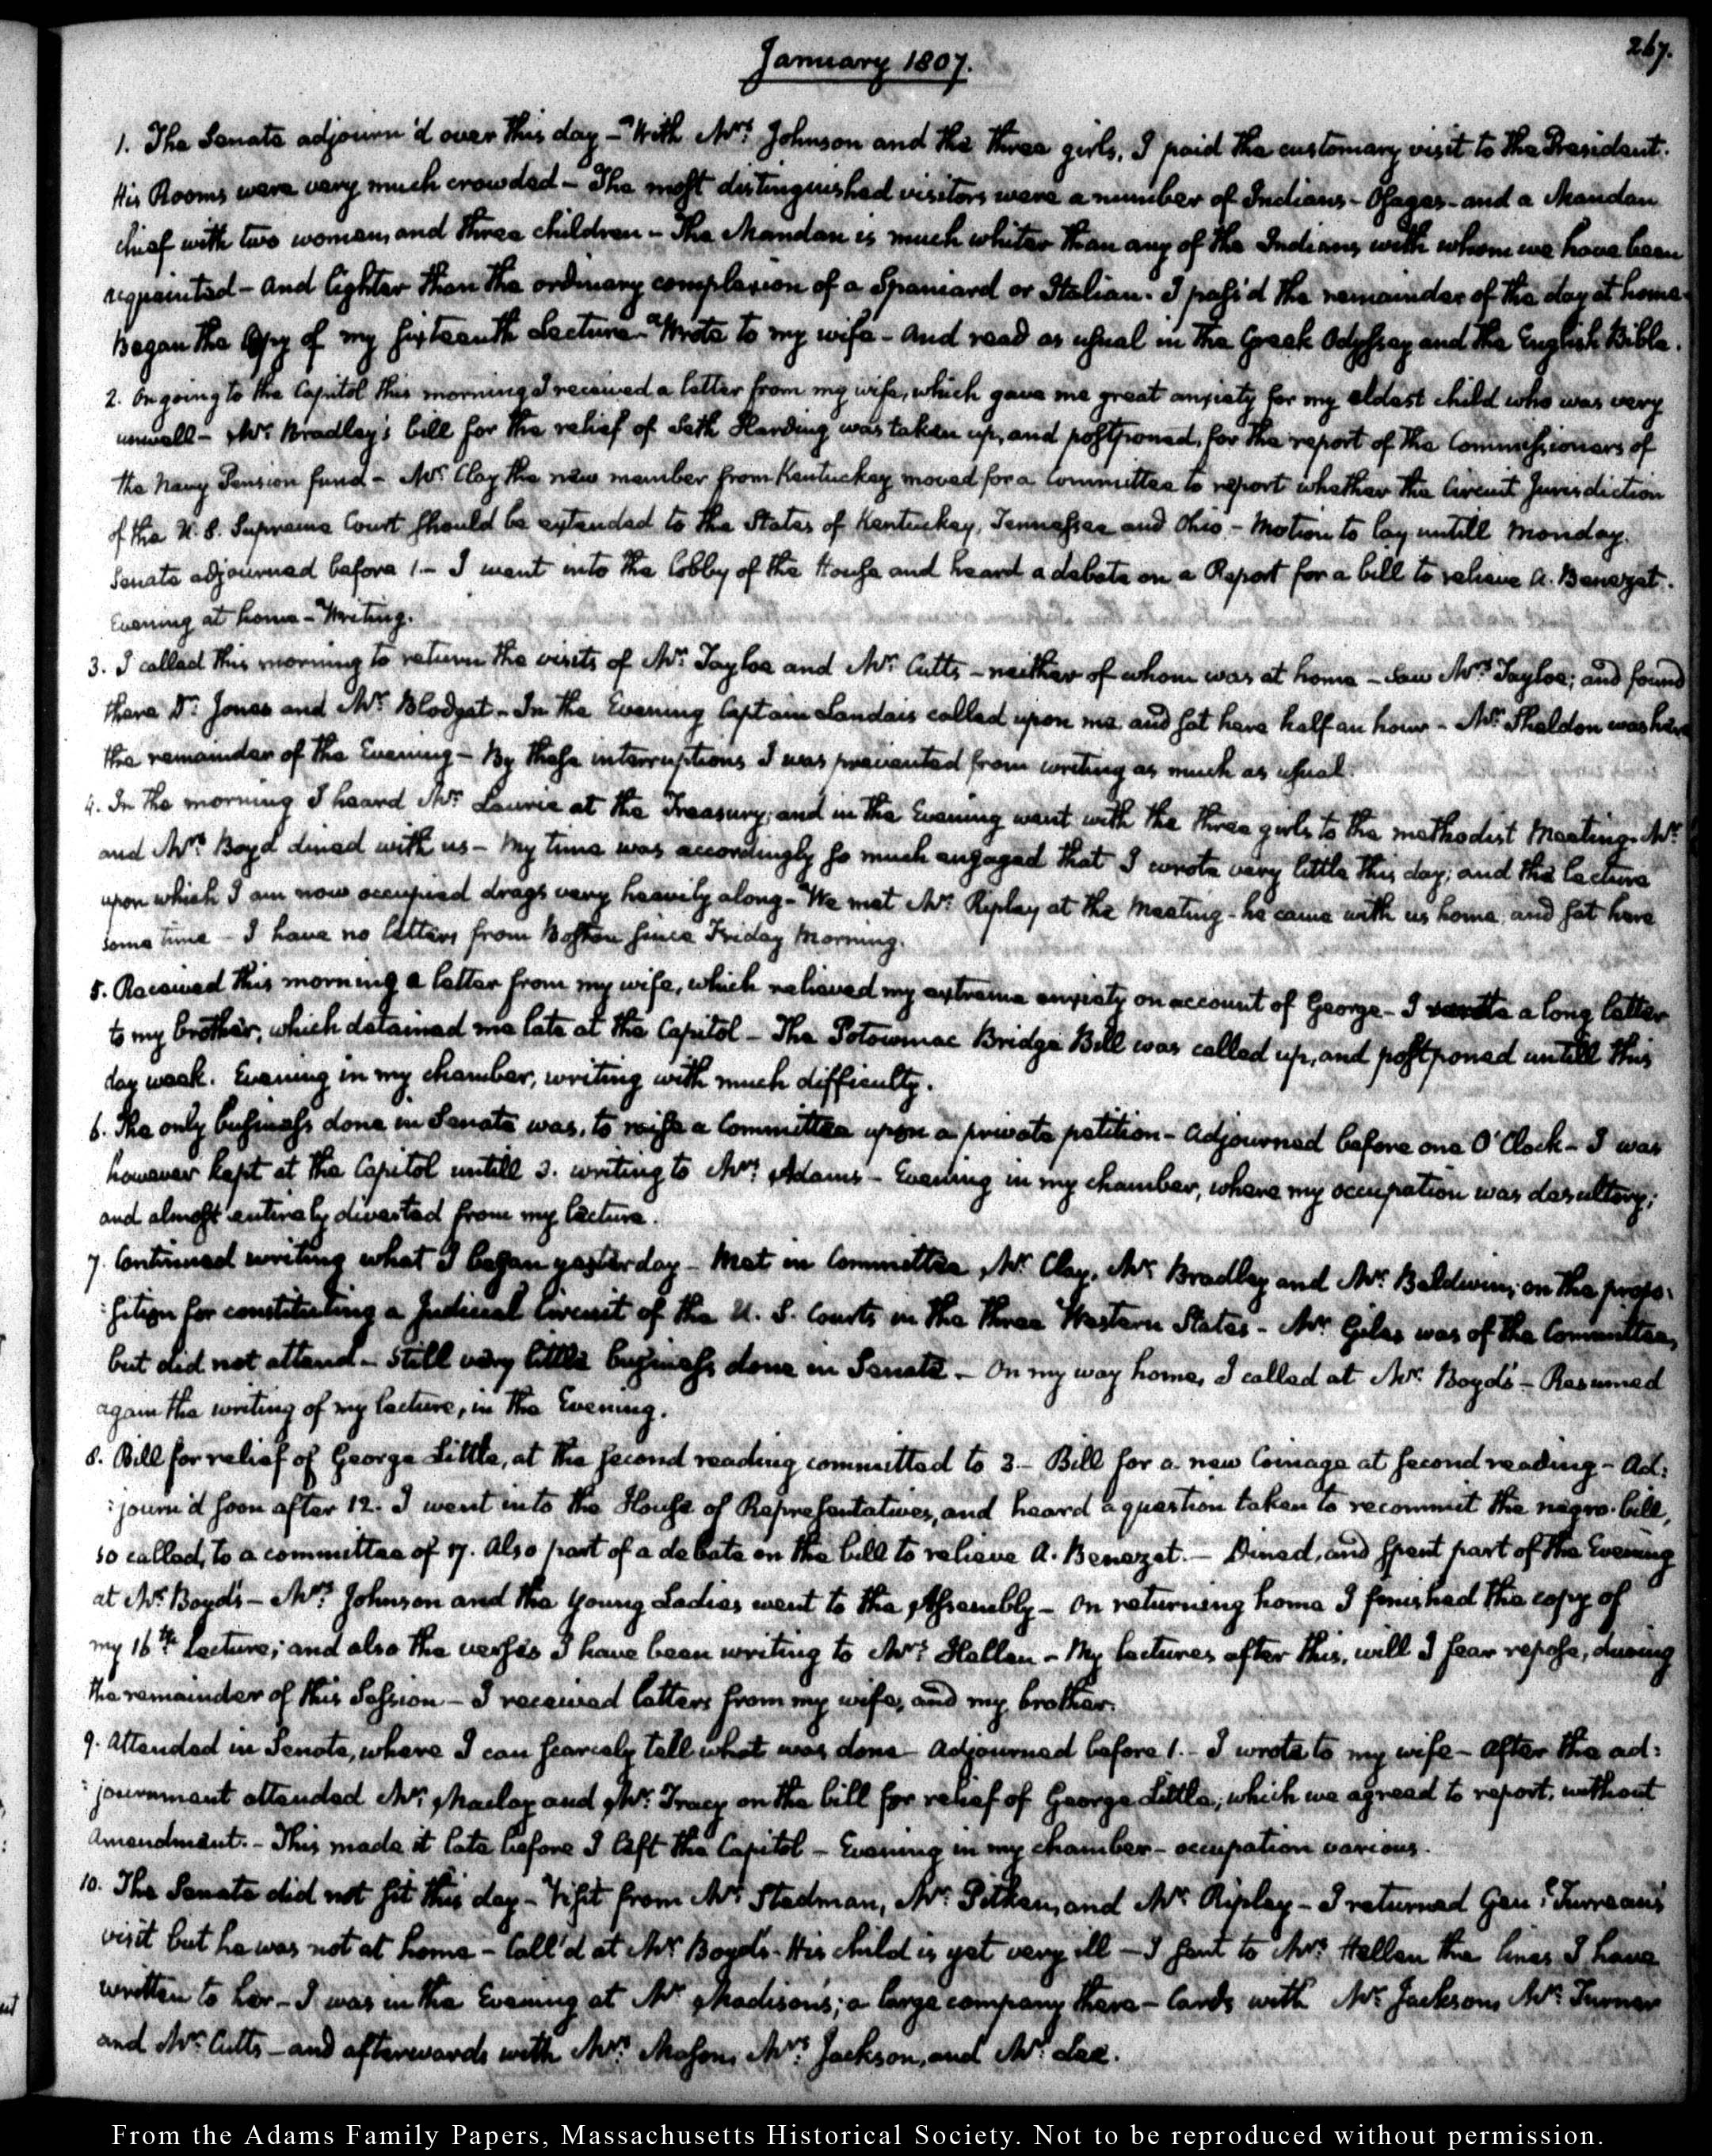 January 1807.
267.
1. The Senate adjourn'd over this day – With Mrs. Johnson and the three girls, I paid the customary visit to the President.
His Rooms were very much crowded – The most distinguished visitors were a number of Indians – Osages – and a Mandan
chief with two women, and three children – The Mandan is much whiter than any of the Indians with whom we have been
acquainted – and lighter than the ordinary complexion of a Spaniard or Italian. I pass'd the remainder of the day at home.
Began the Copy of my sixteenth Lecture – Wrote to my wife – and read as usual in the Greek Odyssey and the English Bible.
2. On going to the Capitol this morning I received a letter from my wife, which gave me great anxiety for my eldest child who was very
unwell – Mr. Bradley's bill for the relief of Seth Harding was taken up, and postponed, for the report of the Commissioners of
the Navy Pension fund – Mr. Clay the new member from Kentuckey moved for a Committee to report whether the Circuit Jurisdiction
of the U. S. Supreme Court should be extended to the States of Kentuckey, Tennessee and Ohio. – Motion to lay untill Monday.
Senate adjourned before 1. – I went into the lobby of the House and heard a debate on a Report for a bill to relieve A. Benezet.
Evening at home – Writing.
3. I called this morning to return the visits of Mr. Tayloe and Mr. Cutts – neither of whom was at home – Saw Mrs. Tayloe; and found
there Dr. Jones and Mr. Blodget – In the Evening Captain Landais called upon me and sat here half an hour – Mr. Sheldon was here
the remainder of the Evening – By these interruptions I was prevented from writing as much as usual.
4. In the morning I heard Mr. Laurie at the Treasury; and in the Evening went with the three girls to the methodist Meeting. Mr.
and Mrs. Boyd dined with us – My time was accordingly so much engaged that I wrote very little this day; and the lecture
upon which I am now occupied drags very heavily along – We met Mr. Ripley at the Meeting – he came with us home, and sat here
some time – I have no letters from Boston since Friday Morning.
5. Received this morning a letter from my wife, which relieved my extreme anxiety on account of George – I wrote a long letter
to my brother, which detained me late at the Capitol – The Potowmac Bridge Bill was called up, and postponed untill this
day week. Evening in my chamber, writing with much difficulty.
6. The only business done in Senate was, to raise a Committee upon a private petition – Adjourned before one O'Clock – I was
however kept at the Capitol untill 3. writing to Mrs. Adams – Evening in my chamber, where my occupation was desultory;
and almost entirely diverted from my lecture.
7. Continued writing what I began yesterday – Met in Committee, Mr. Clay, Mr. Bradley and Mr. Baldwin; on the propo:
:sition for constituting a Judicial Circuit of the U. S. Courts in the three Western States – Mr. Giles was of the Committee,
but did not attend – Still very little business done in Senate – On my way home, I called at Mr. Boyd's – Resumed
again the writing of my lecture, in the Evening.
8. Bill for relief of George Little, at the second reading committed to 3 – Bill for a new Coinage at second reading – Ad:
:journ'd soon after 12. I went into the House of Representatives, and heard a question taken to recommit the negro-bill,
so called, to a committee of 17. Also part of a debate on the bill to relieve A. Benezet. – Dined, and spent part of the Evening
at Mr. Boyd's – Mrs. Johnson and the Young Ladies went to the Assembly – On returning home I finished the copy of
my 16th. Lecture; and also the verses I have been writing to Mrs. Hellen – My lectures after this, will I fear repose, during
the remainder of this Session – I received letters from my wife, and my brother.
9. Attended in Senate, where I can scarcely tell what was done – Adjourned before 1. – I wrote to my wife – After the ad:
:journment attended Mr. Maclay and Mr. Tracy on the bill for relief of George Little; which we agreed to report, without
amendment. – This made it late before I left the Capitol – Evening in my chamber – occupation various.
10. The Senate did not sit this day – Visit from Mr. Stedman, Mr. Pitkin, and Mr. Ripley – I returned Genl. Turreau's
visit but he was not at home – Call'd at Mr. Boyd's – His child is yet very ill – I sent to Mrs. Hellen the lines I have
written to her – I was in the Evening at Mr. Madison's; a large company there – Cards with Mr. Jackson, Mr. Turner
and Mr. Cutts – and afterwards with Mrs. Mason, Mrs. Jackson, and Mr. Lee.
From the Adams Family Papers, Massachusetts Historical Society. Not to be reproduced without permission.